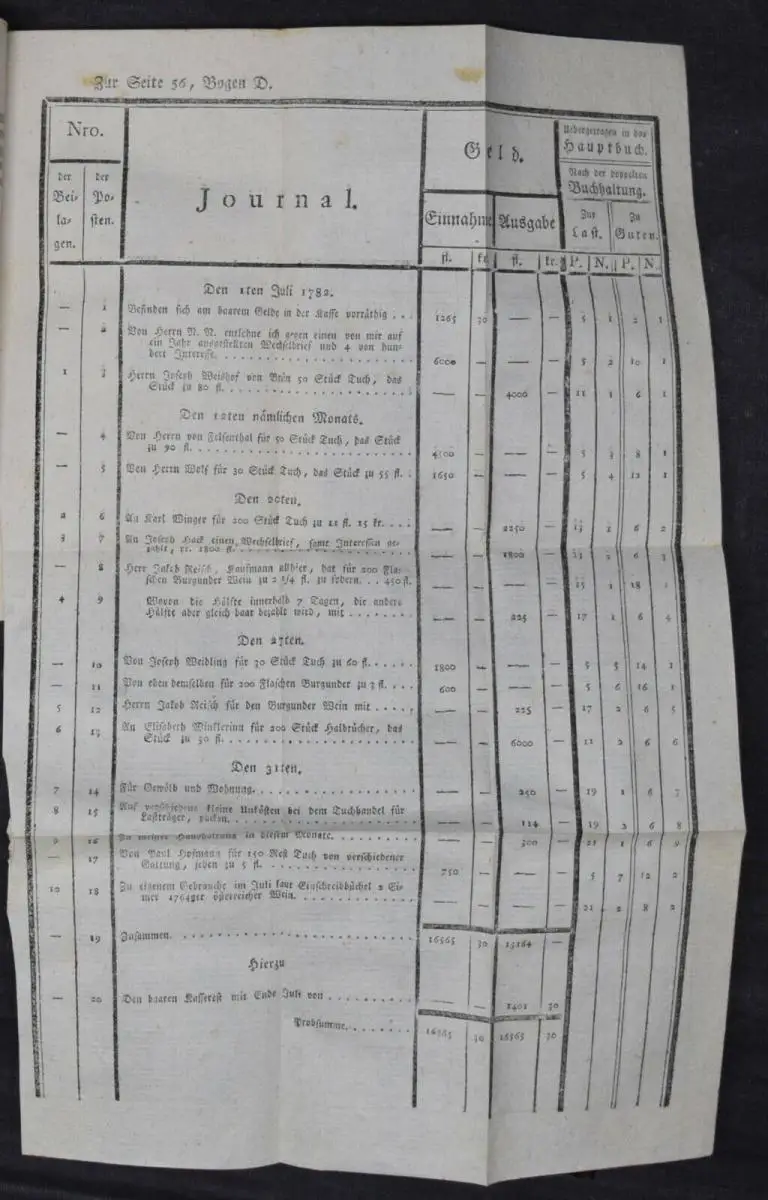 Zur Seite 56, Bogen D.
Nro.
der Beilagen.
der Posten.
Journal.
Geld.
Einnahme
Ausgabe
fl. kr. fl. kr.
Uebergetragen in das
Hauptbuch.
Nach der doppelten
Buchhaltung.
Zur Last.
Zu Guten.
P. N. P. N.
Den 1ten Juli 1782.
— 1 Befinden sich am baarem Gelde in der Kasse vorräthig . . . 1265 30 — — 5 1 2 1
— 2 Von Herrn N. N. entlehne ich gegen einen von mir auf
ein Jahr ausgestellten Wechselbrief und 4 von hun-
dert Interesse. 6000 — — 5 2 10 1
1 3 Herrn Joseph Weishof von Brün 50 Stück Tuch, das
Stück zu 80 fl. — — 4000 — 11 1 6 1
Den 12ten nämlichen Monats.
— 4 Von Herrn von Felsenthal für 50 Stück Tuch, das Stück
zu 90 fl. 4500 — — — 5 3 8 1
— 5 Von Herrn Wolf für 30 Stück Tuch, das Stück zu 55 fl. . 1650 — — — 5 4 12 1
Den 20ten.
2 6 An Karl Winger für 200 Stück Tuch zu 11 fl. 15 kr. . . . — — 2250 — 13 1 6 2
3 7 An Joseph Hack einen Wechselbrief, samt Interessen ge-
zahlt, pr. 1800 fl. — — 1800 — 13 2 6 3
— 8 Herr Jakob Reisch, Kaufmann allhier, hat für 200 Fla-
schen Burgunder Wein zu 2 1/4 fl. zu fodern. . . 450 fl. 15 1 18
4 9 Wovon die Hälfte innerhalb 7 Tagen, die andere
Hälfte aber gleich baar bezahlt wird, mit — — 225 — 17 1 6 4
Den 27ten.
— 10 Von Joseph Weidling für 30 Stück Tuch zu 60 fl. 1800 — — — 5 5 14 1
— 11 Von eben demselben für 200 Flaschen Burgunder zu 3 fl. . . . 600 — — — 5 6 16 1
5 12 Herrn Jakob Reisch für den Burgunder Wein mit — — 225 — 17 2 6 5
6 13 An Elisabeth Winklerinn für 200 Stück Halbtücher, das
Stück zu 30 fl. — — 6000 — 11 2 6 6
Den 31ten.
7 14 Für Gewölb und Wohnung. — — 250 — 19 1 6 7
8 15 Auf verschiedene kleine Unkösten bei dem Tuchhandel für
Lastträger, packen. — — 114 — 19 2 6 8
9 16 Zu meiner Haushaltung in diesem Monate. — — 300 — 21 1 6 9
— 17 Von Paul Hofmann für 150 Rest Tuch von verschiedener
Gattung, jeden zu 5 fl. 750 — — — 5 7 12 2
10 18 Zu eigenem Gebrauche im Juli laut Einschreibbüchel 2 Ei-
mer 1764ger österreicher Wein. — — — — 21 2 8 2
— 19 Zusammen. 16565 30 15164 —
Hierzu
— 20 Den baaren Kasserest mit Ende Juli von — — 1401 30
Probsumme. 16565 30 16565 30